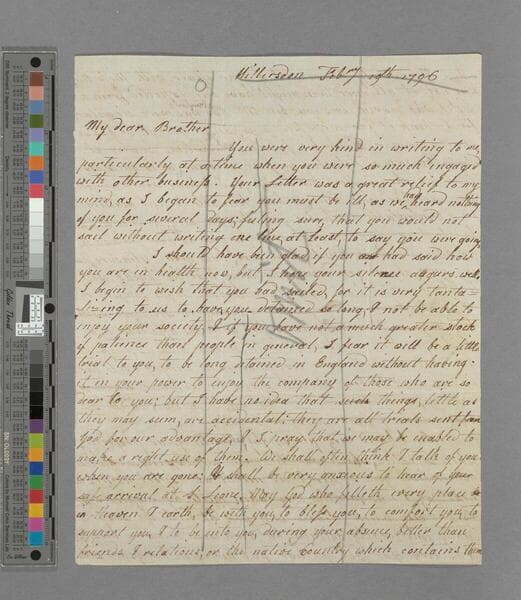 Hillersdon Feby 19th 1796
My dear Brother
You were very kind in writing to me,
particularly at a time when you were so much engaged
with other business. Your Letter was a great relief to my
mind, as I began to fear you must be ill, as we had heard nothing
of you for several days; feeling sure, that you would not
sail without writing one line, at least, to say you were going
I should have been glad if you had said how
you are in health now, but I hope your silence augurs well.
I begin to wish that you had sailed, for it is very tanta-
lizing to us to have you detained so long, & not be able to
enjoy your society. If you have not a much greater stock
of patience than people in general, I fear it will be a little
trial to you, to be long detained in England without having
it in your power to enjoy the company of those who are so
dear to you; but I have no idea that such things, little as
they may seem, are accidental: they are all trials sent from
God for our advantage, & I pray that we may be enabled to
make a right use of them. We shall often think & talk of you
when you are gone: & shall be very anxious to hear of your
safe arrival at S. Leone. May God who filleth every place
in heaven & earth, be with you, to bless you, to comfort you, to
support you, & to be unto you, during your absence, better than
friends & relations, or the native Country which contains them